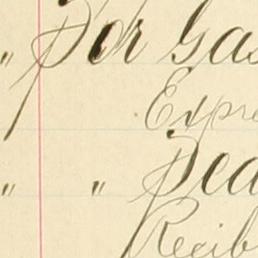 " For Gas
Expre
" " Dea
Recib